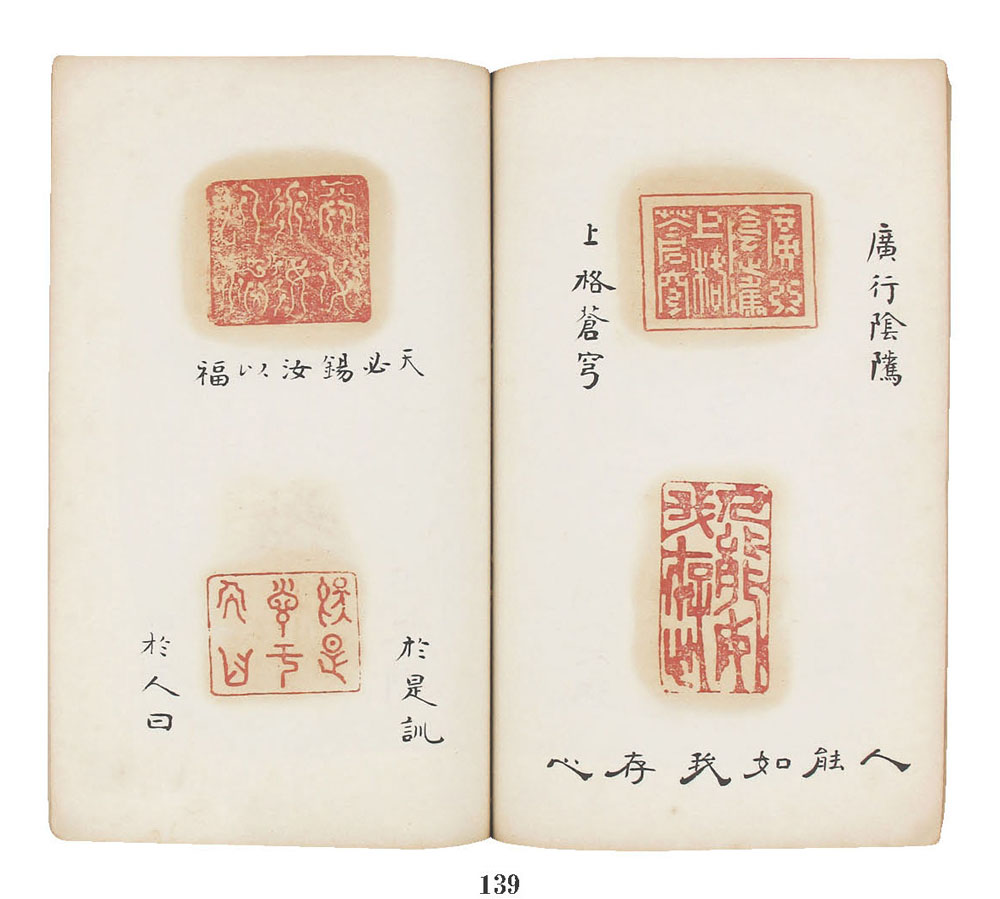 廣行陰隲
上格蒼穹
人能如我存心
天必錫汝以福
於是訓
於人曰
139